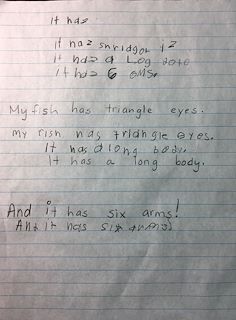 It has
it has shridgol iz
It has a Log dote
It has 6 aMS.
My fish has triangle eyes.
my fish has triangle eyes.
It has a long body.
It has a long body.
And it has six arms!
And it has six arms!